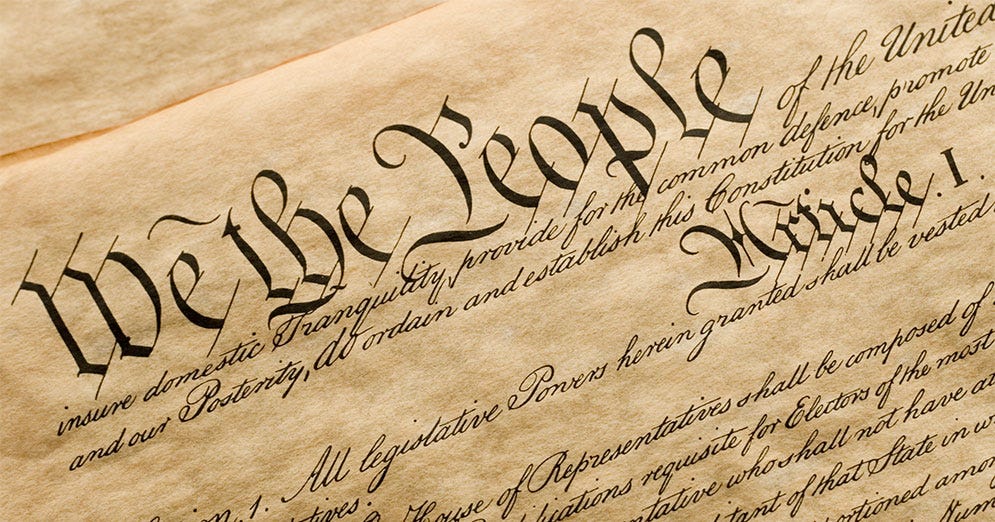 We the People of the United
insure domestic Tranquility, provide for the common defence, promote
and our Posterity, do ordain and establish this Constitution for the Un
Article. I.
1. All legislative Powers herein granted shall be vested
House of Representatives shall be composed of
requisite for Electors of the most
who shall not have at
of that State in w
among
Num